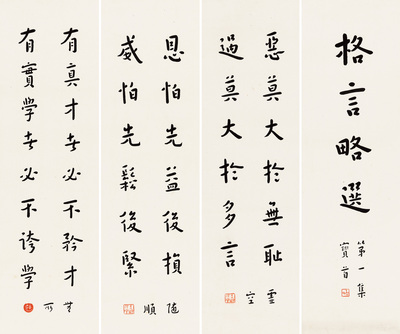 格言略選
第一集
惡莫大於無耻
過莫大於多言
恩怕先益後損
隨
威怕先鬆後緊
順
有真才者必不矜才
有實學者必不誇學